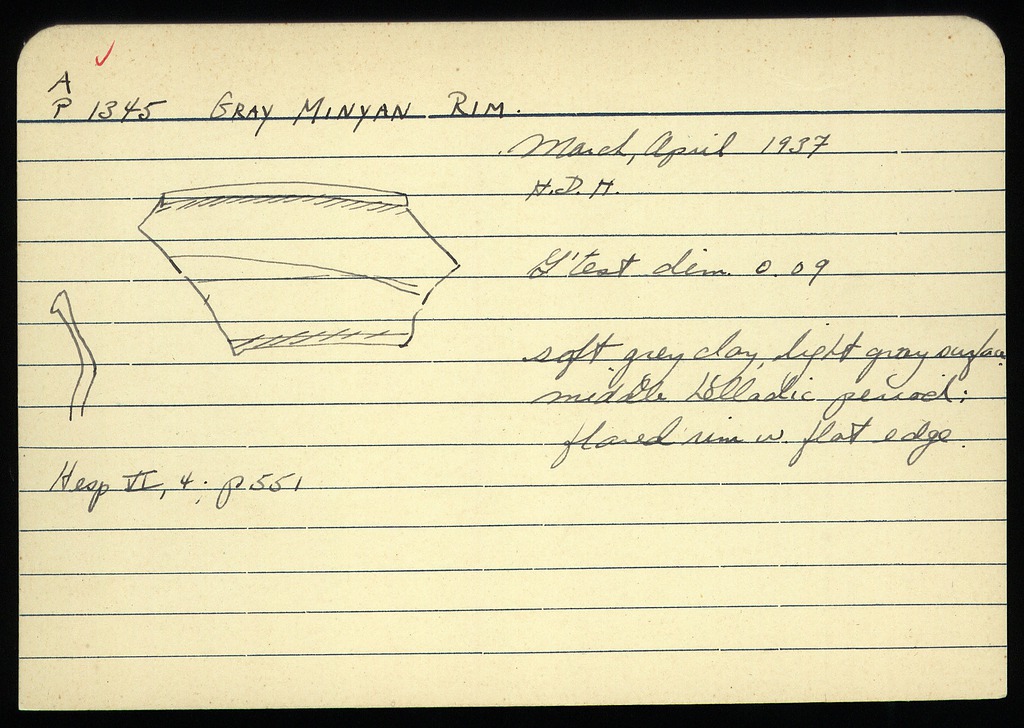 A
P 1345 GRAY MINYAN RIM.
March, April 1937
H.D.H.
G'test dim. 0.09
soft grey clay, light gray surface
middle Helladic period;
flared rim w. flat edge.
Hesp VI, 4; p 551